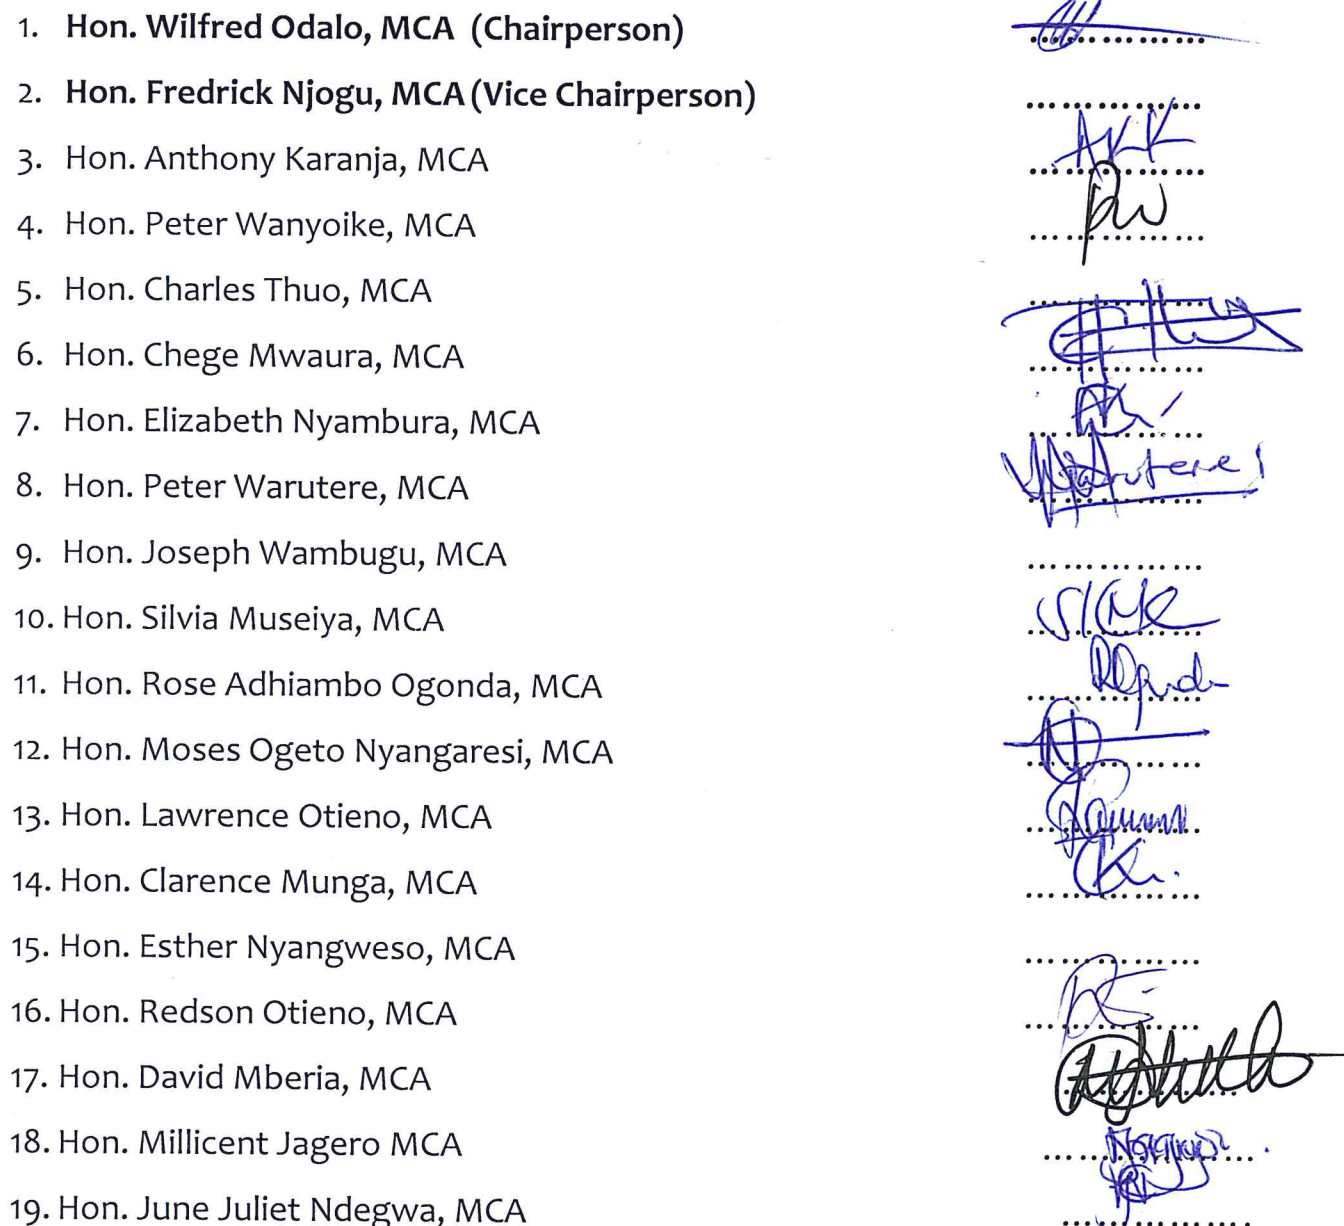 1. Hon. Wilfred Odalo, MCA (Chairperson) ................
2. Hon. Fredrick Njogu, MCA (Vice Chairperson) ................
3. Hon. Anthony Karanja, MCA AKK ................
4. Hon. Peter Wanyoike, MCA PW ................
5. Hon. Charles Thuo, MCA ................
6. Hon. Chege Mwaura, MCA ................
7. Hon. Elizabeth Nyambura, MCA ................
8. Hon. Peter Warutere, MCA Warutere ................
9. Hon. Joseph Wambugu, MCA ................
10. Hon. Silvia Museiya, MCA ................
11. Hon. Rose Adhiambo Ogonda, MCA ................
12. Hon. Moses Ogeto Nyangaresi, MCA ................
13. Hon. Lawrence Otieno, MCA ................
14. Hon. Clarence Munga, MCA ................
15. Hon. Esther Nyangweso, MCA ................
16. Hon. Redson Otieno, MCA ................
17. Hon. David Mberia, MCA ................
18. Hon. Millicent Jagero MCA ................
19. Hon. June Juliet Ndegwa, MCA ................